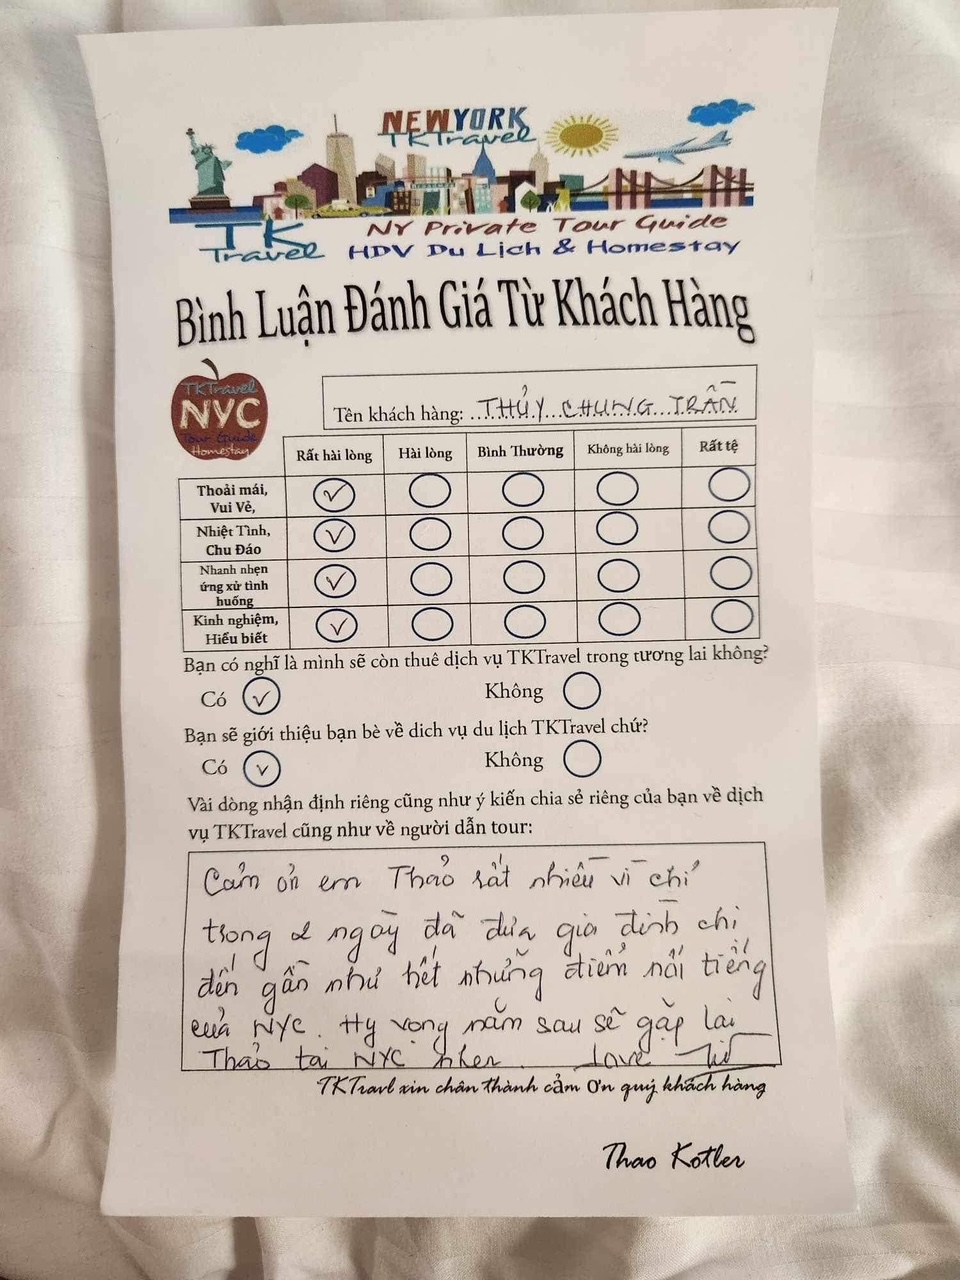 NEWYORK
TKTravel
TK
Travel
NY Private Tour Guide
HDV Du Lịch & Homestay
Bình Luận Đánh Giá Từ Khách Hàng
TKTravel
NYC
Tour Guide
Homestay
Tên khách hàng: ..THỦY...CHUNG...TRẦN
Rất hài lòng Hài lòng Bình Thường Không hài lòng Rất tệ
Thoải mái,
Vui Vẻ,
Nhiệt Tình,
Chu Đáo
Nhanh nhẹn
ứng xử tình
huống
Kinh nghiệm,
Hiểu biết
Bạn có nghĩ là mình sẽ còn thuê dịch vụ TKTravel trong tương lai không?
Có Không
Bạn sẽ giới thiệu bạn bè về dich vụ du lịch TKTravel chứ?
Có Không
Vài dòng nhận định riêng cũng như ý kiến chia sẻ riêng của bạn về dịch
vụ TKTravel cũng như về người dẫn tour:
Cảm ơn em Thảo rất nhiều vì chỉ
trong 2 ngày đã đưa gia đình chị
đến gần như hết những điểm nổi tiếng
của NYC. Hy vọng năm sau sẽ gặp lại
Thảo tại NYC nhen. Love
TKTravl xin chân thành cảm ơn quý khách hàng
Thao Kotler